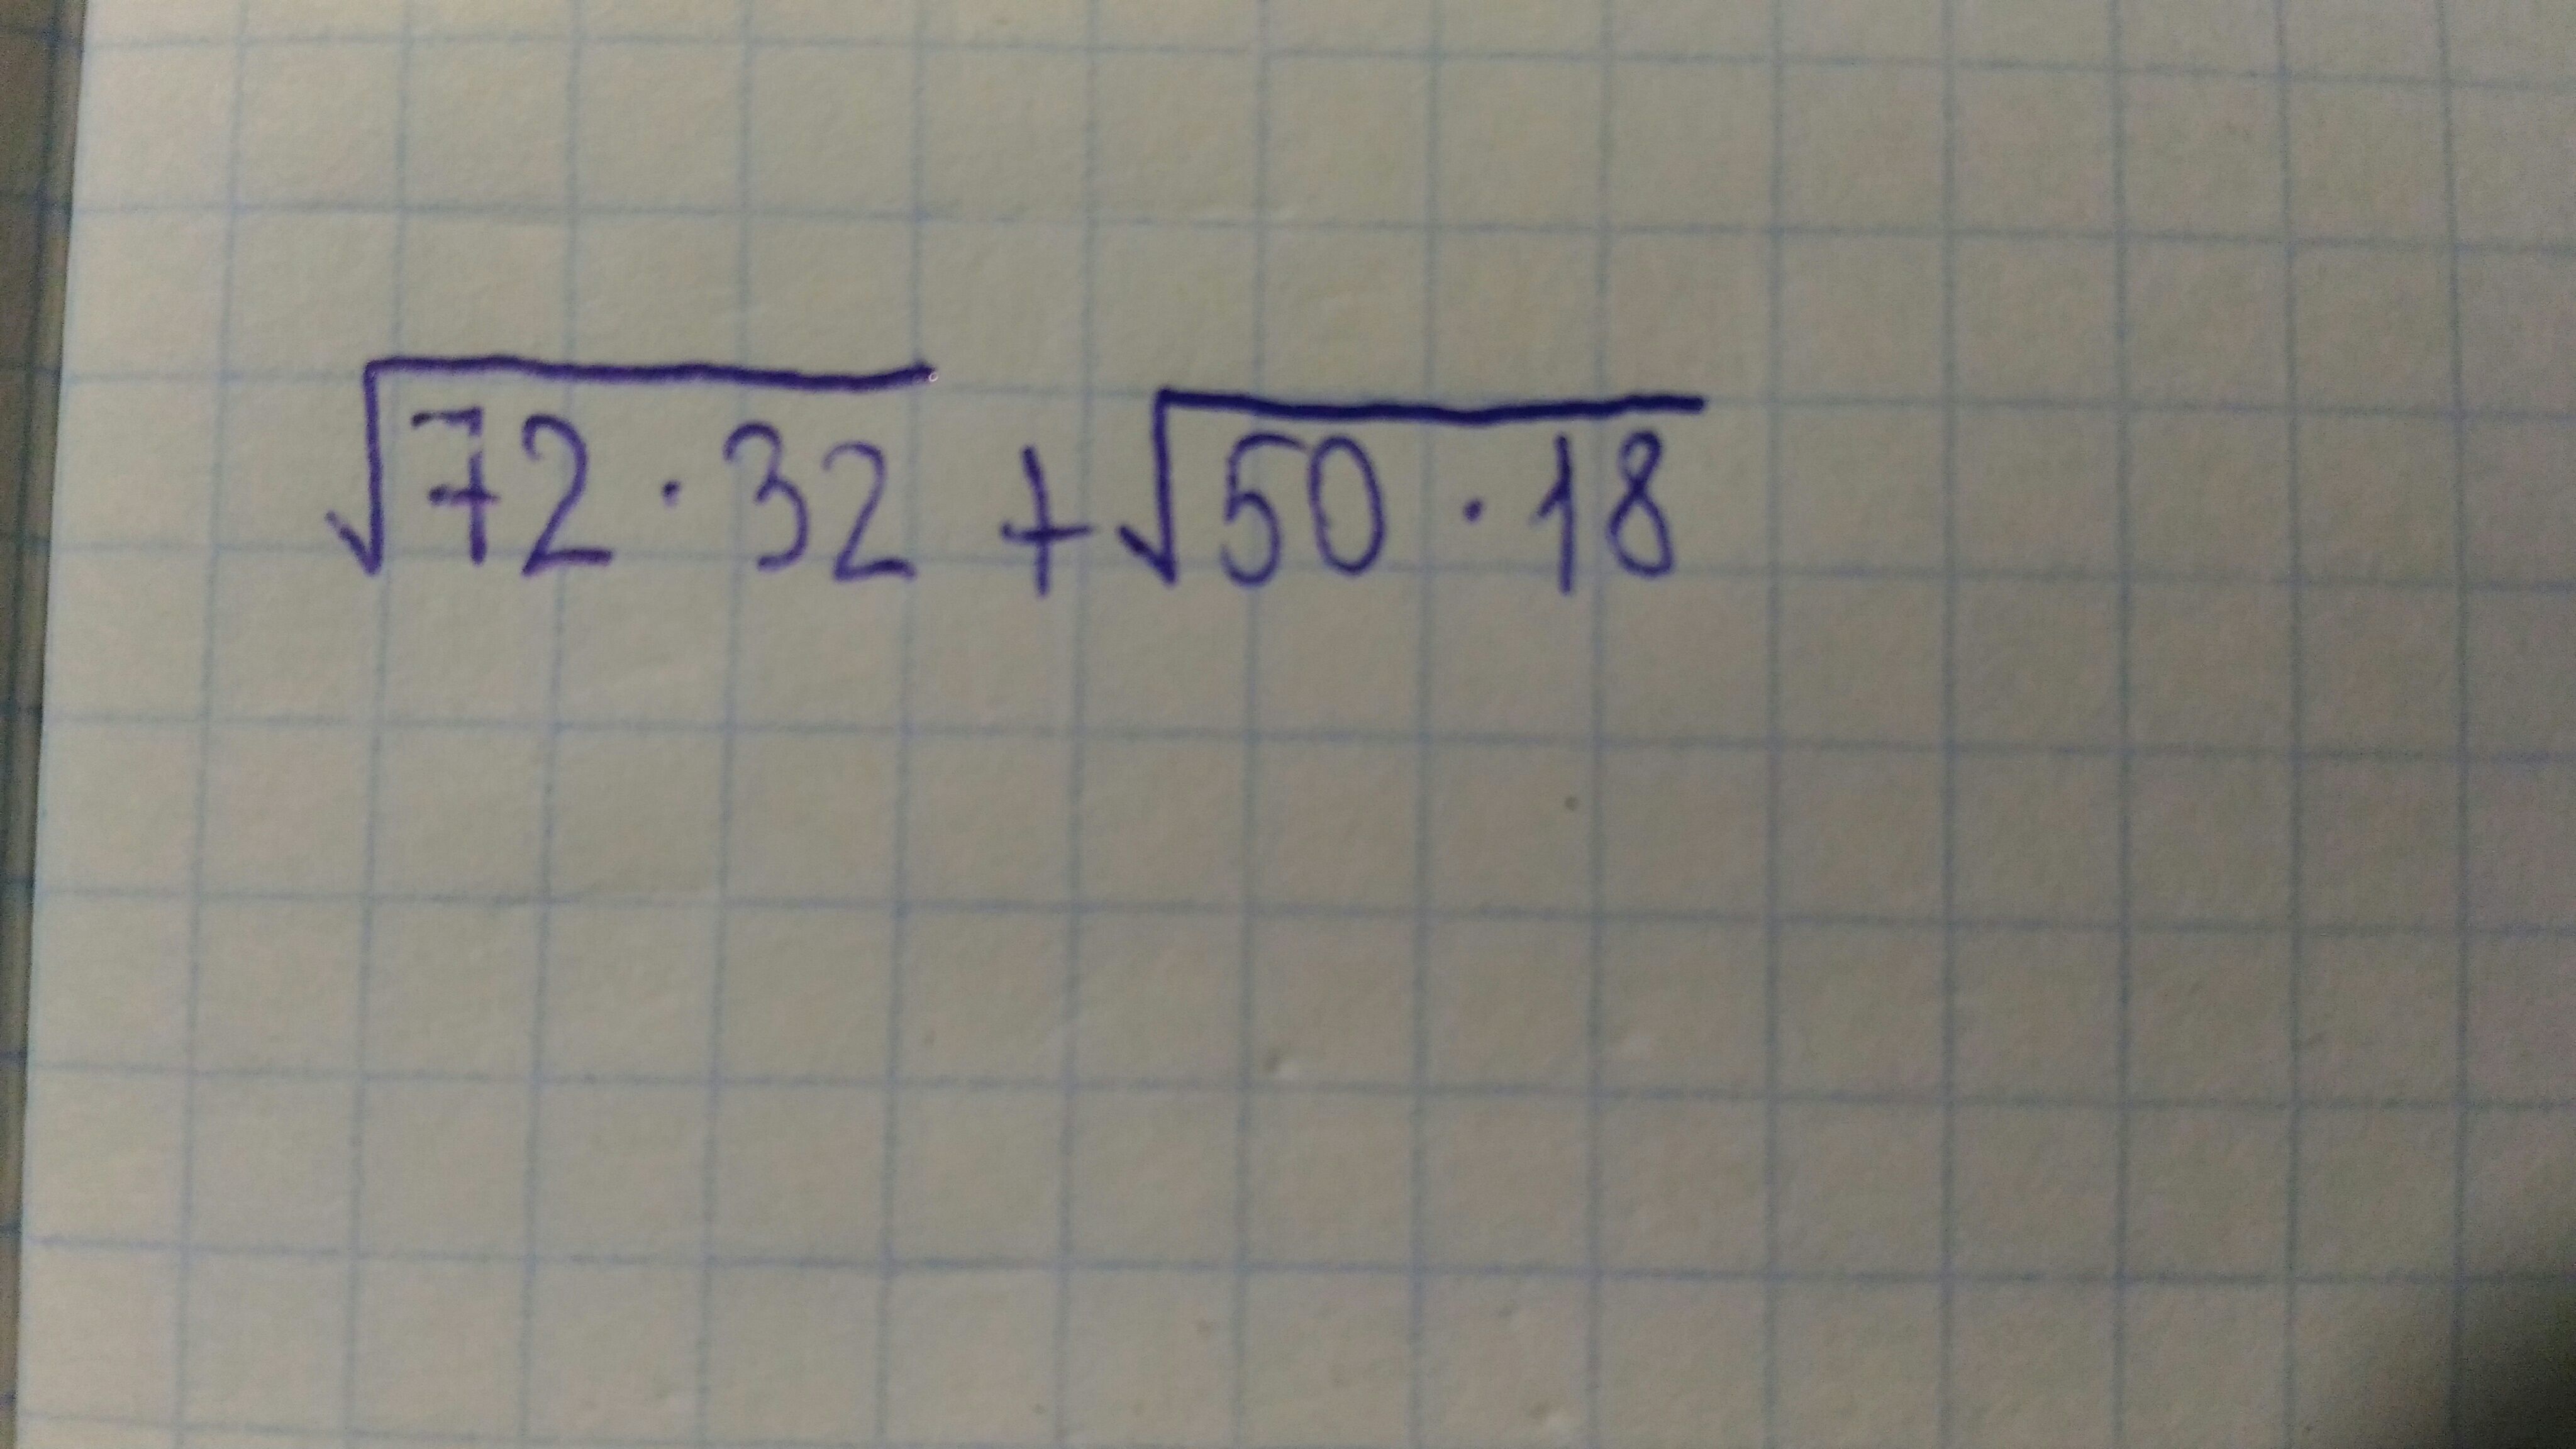 √72·32 + √50·18